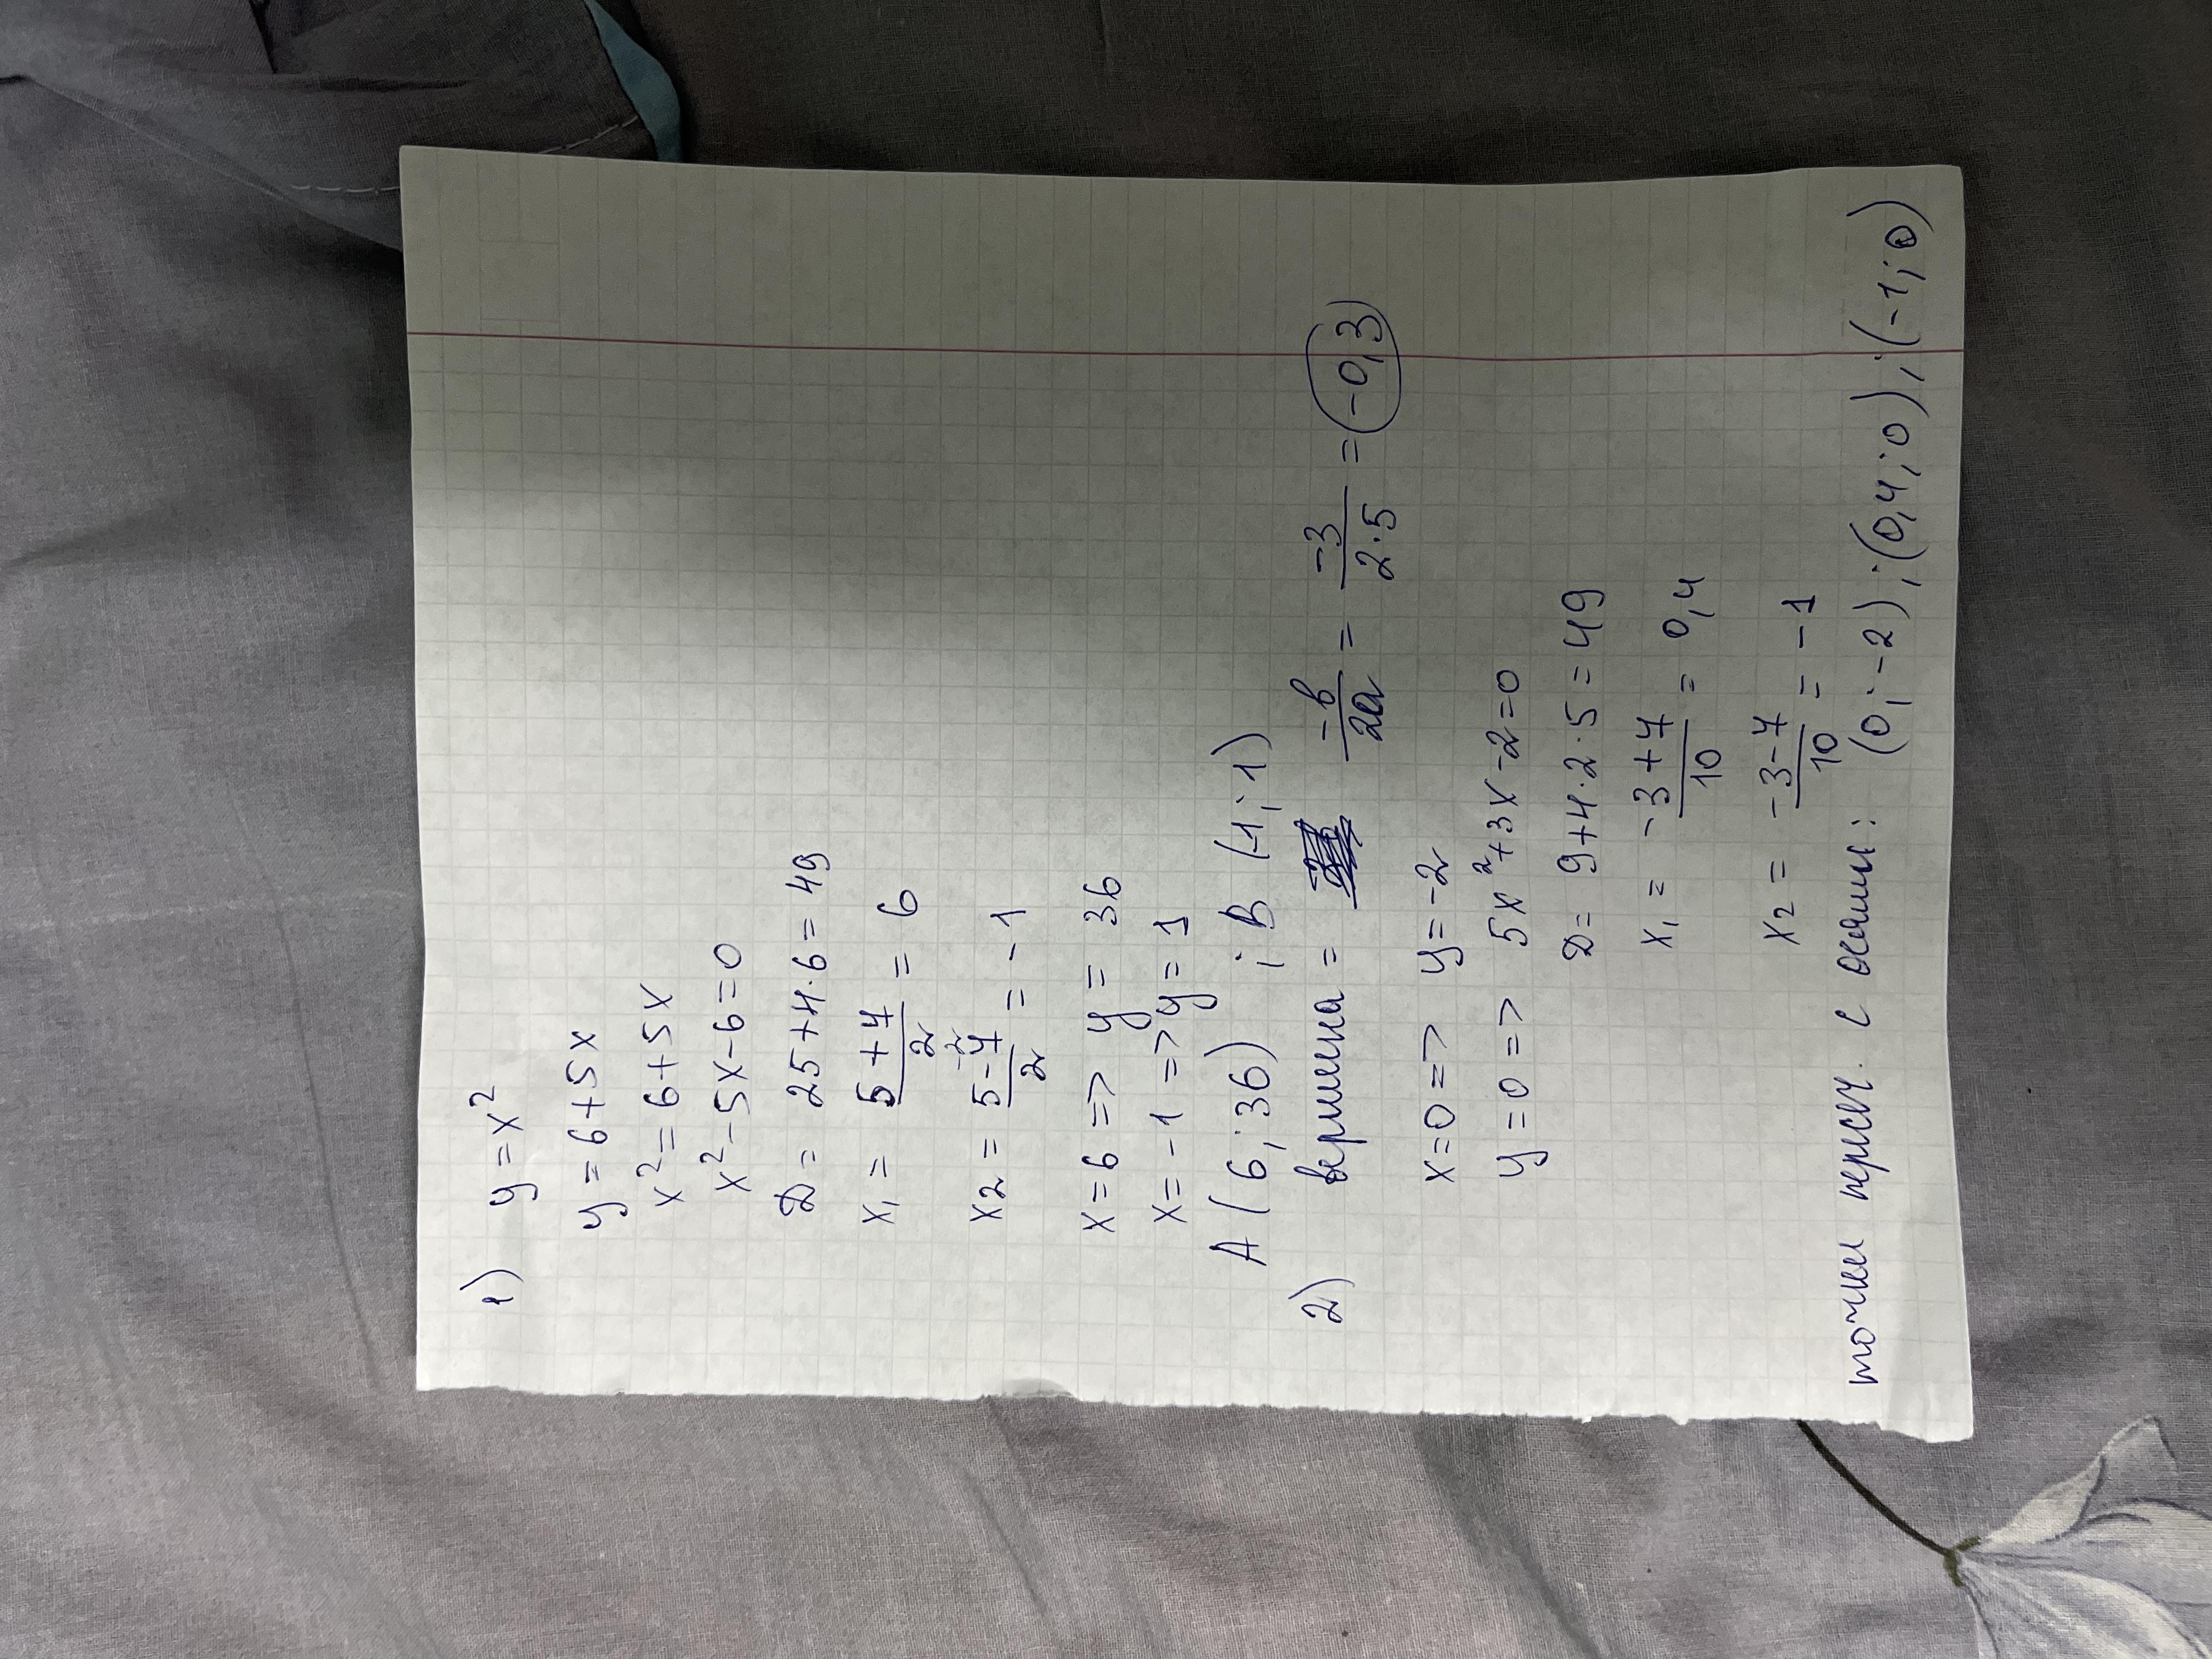 1) y = x²
y = 6 + 5x
x² = 6 + 5x
x² - 5x - 6 = 0
D = 25 + 4·6 = 49
x₁ = (5 + 7)/2 = 6
x₂ = (5 - 7)/2 = -1
x = 6 => y = 36
x = -1 => y = 1
A (6; 36) ; B (-1; 1)
2) вершина = -b/2a = -3/2·5 = -0,3
x = 0 => y = -2
y = 0 => 5x² + 3x - 2 = 0
D = 9 + 4·2·5 = 49
x₁ = (-3 + 7)/10 = 0,4
x₂ = (-3 - 7)/10 = -1
точки пересеч. с осями: (0; -2); (0,4; 0); (-1; 0)